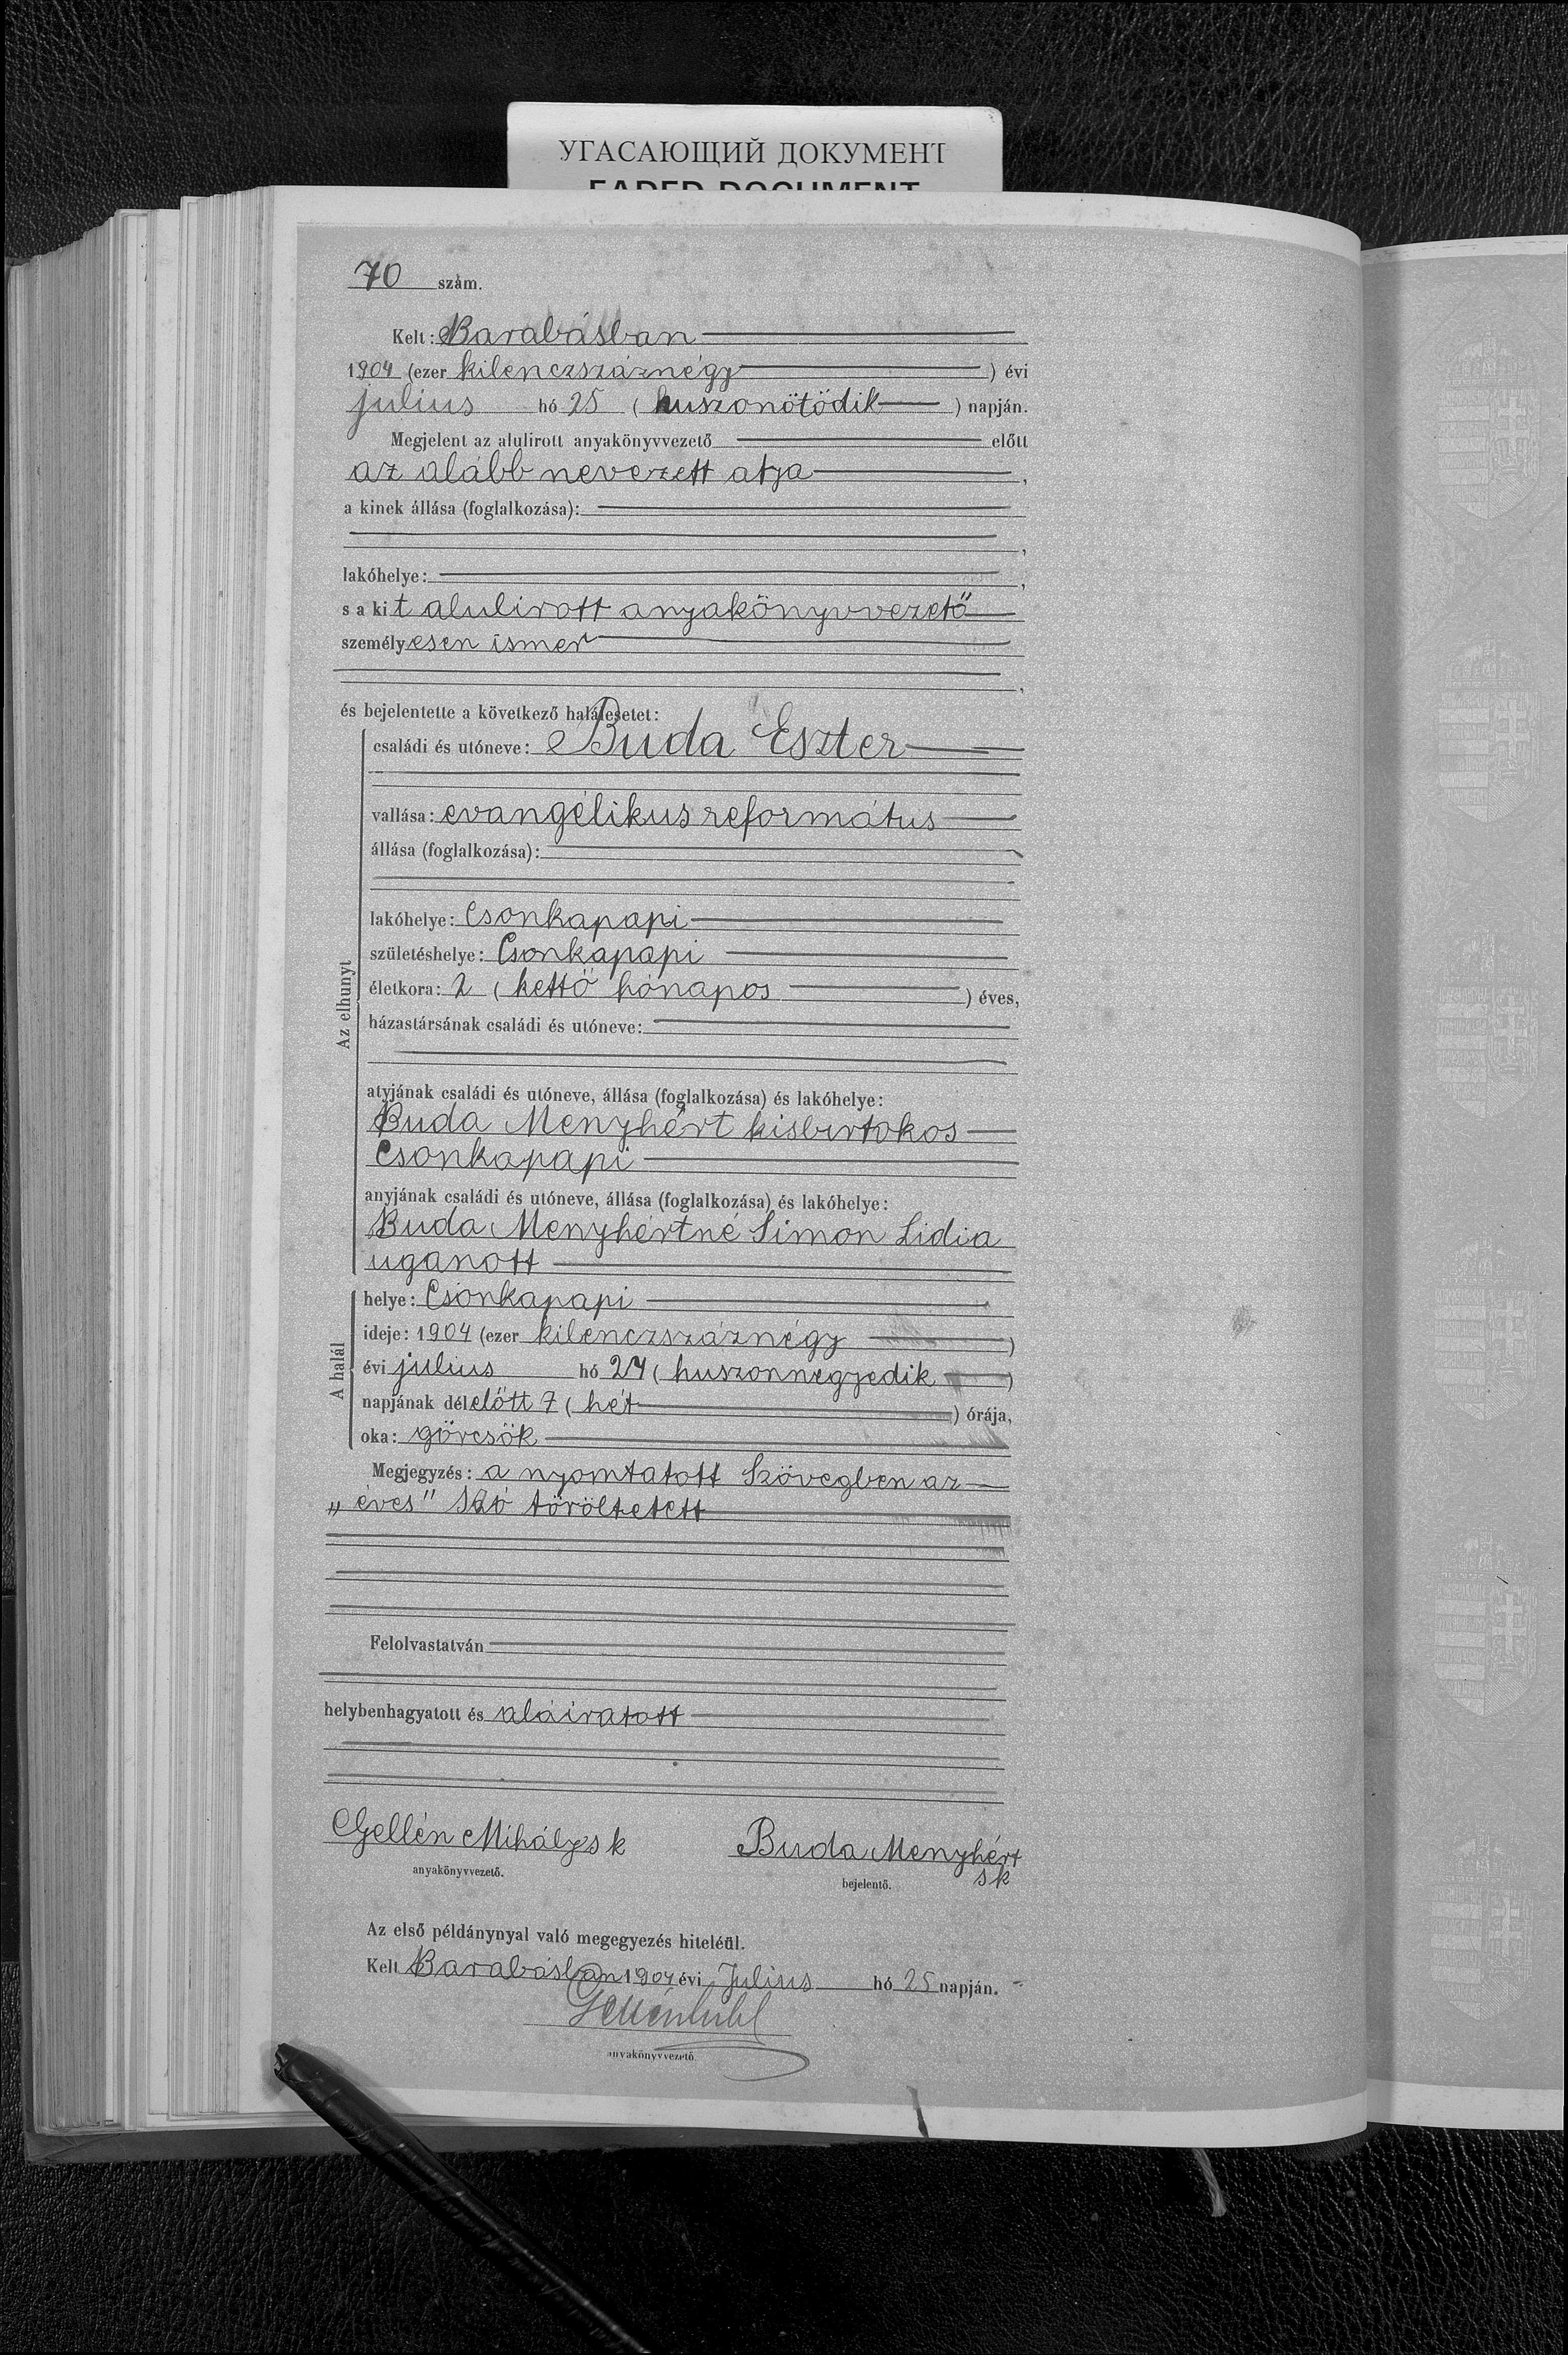 УГАСАЮЩИЙ ДОКУМЕНТ
FADED DOCUMENT
70 szám.
Kelt: Barabásban
1904 (ezer kilenczszáznégy) évi
julius hó 25 (huszonötödik) napján.
Megjelent az alulirott anyakönyvvezető előtt
az alább nevezett atja,
a kinek állása (foglalkozása):
,
lakóhelye: ,
s a kit alulirott anyakönyvvezető
személyesen ismer
,
és bejelentette a következő halálesetet:
családi és utóneve: Buda Eszter
vallása: evangélikus református
állása (foglalkozása):
lakóhelye: Csonkapapi
születéshelye: Csonkapapi
Az elhunyt
életkora: 2 (kettő hónapos) éves,
házastársának családi és utóneve:
atyjának családi és utóneve, állása (foglalkozása) és lakóhelye:
Buda Menyhért kisbirtokos
Csonkapapi
anyjának családi és utóneve, állása (foglalkozása) és lakóhelye:
Buda Menyhértné Simon Lidia
uganott
helye: Csonkapapi
ideje: 1904 (ezer kilenczszáznégy)
A halál
évi julius hó 24 (huszonnegyedik)
napjának délelőtt 7 (hét) órája,
oka: görcsök
Megjegyzés: a nyomtatott szövegben az
„éves" szó töröltetett
Felolvastatván
helybenhagyatott és aláiratott
Gellén Mihály s k Buda Menyhért
s k
anyakönyvvezető. bejelentő.
Az első példánynyal való megegyezés hiteléül.
Kelt Barabásban 1904 évi Julius hó 25 napján.
anyakönyvvezető.